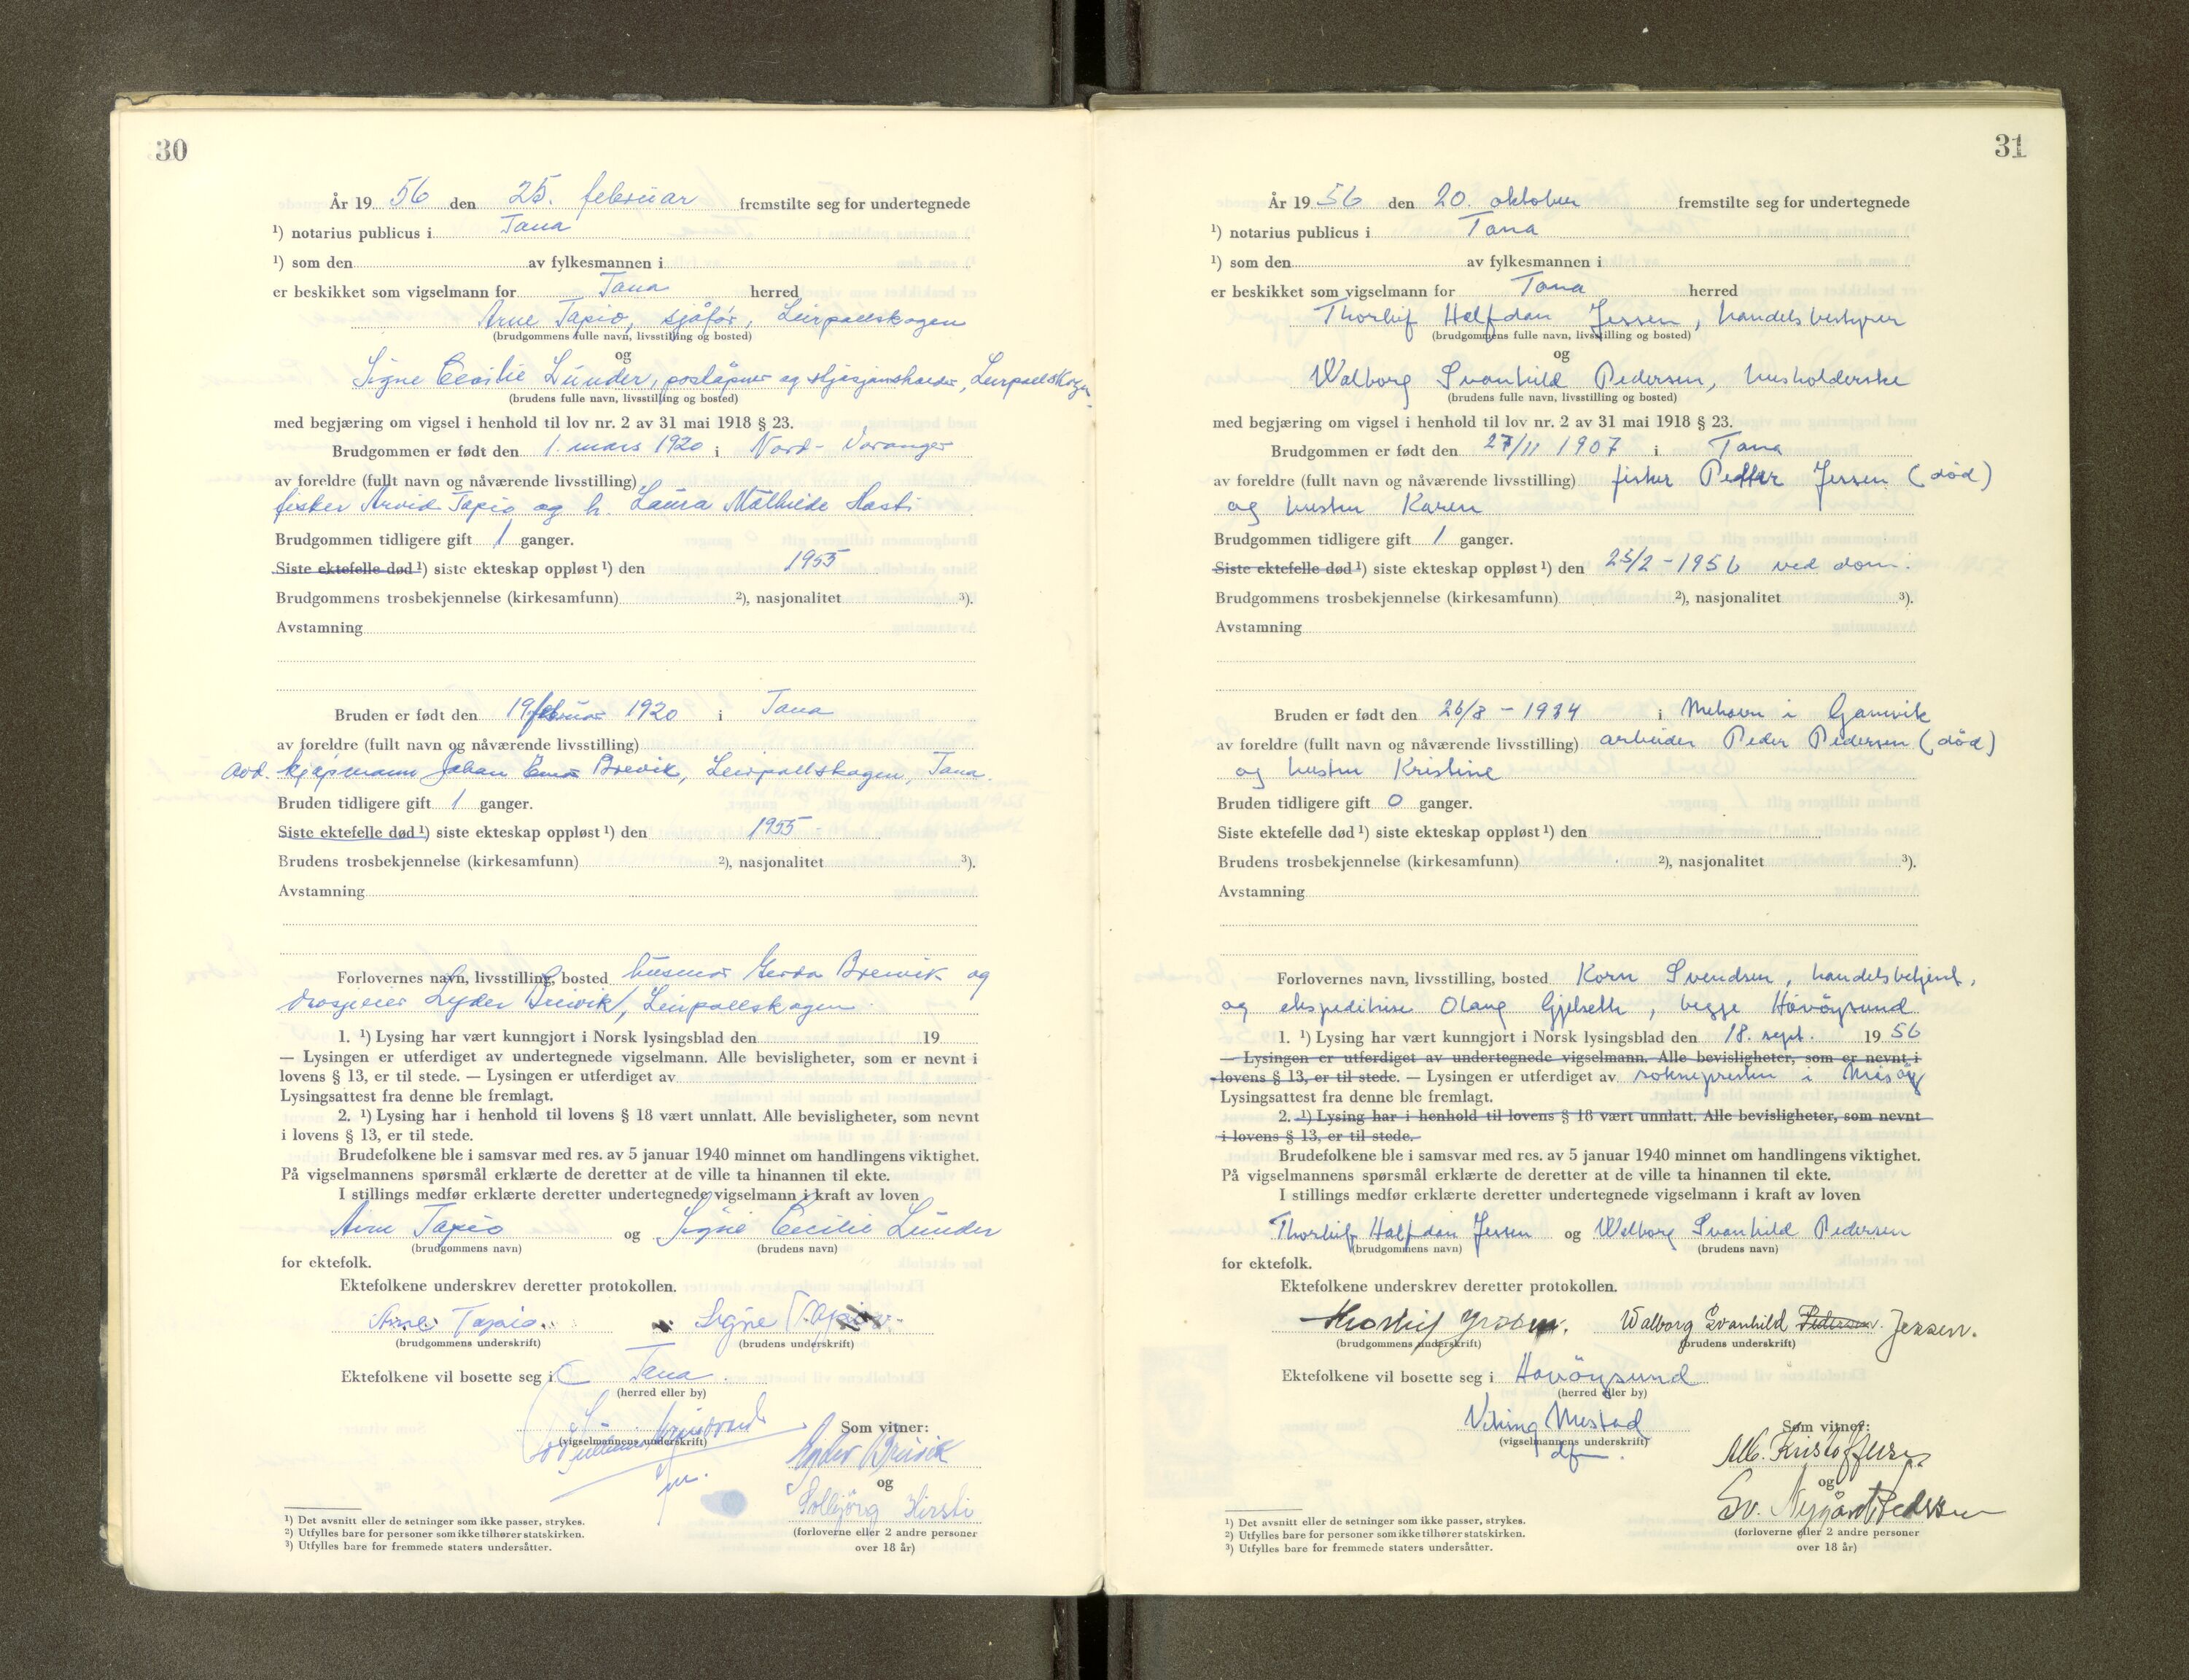 30
År 19 56 den 25. februar fremstilte seg for undertegnede
¹) notarius publicus i Tana
¹) som den av fylkesmannen i
er beskikket som vigselmann for Tana herred
Arne Tapio, sjåfør, Leirpollskogen
(brudgommens fulle navn, livsstilling og bosted)
og
Signe Cecilie Lunder, poståpner og skysjanshaver, Leirpollskogen
(brudens fulle navn, livsstilling og bosted)
med begjæring om vigsel i henhold til lov nr. 2 av 31 mai 1918 § 23.
Brudgommen er født den 1. mars 1920 i Nord-Varanger
av foreldre (fullt navn og nåværende livsstilling)
fisker Arvid Tapio og h. Laura Mathilde Hasti
Brudgommen tidligere gift 1 ganger.
Siste ektefelle død ¹) siste ekteskap oppløst ¹) den 1955
Brudgommens trosbekjennelse (kirkesamfunn) ²), nasjonalitet ³).
Avstamning
Bruden er født den 19 februar 1920 i Tana
av foreldre (fullt navn og nåværende livsstilling)
avd. kjøpmann Johan Brevik, Leirpollskogen, Tana.
Bruden tidligere gift 1 ganger.
Siste ektefelle død ¹) siste ekteskap oppløst ¹) den 1955
Brudens trosbekjennelse (kirkesamfunn) ²), nasjonalitet ³).
Avstamning
Forlovernes navn, livsstilling, bosted husmor Gerda Breivik og
drosjeeier Lyder Breivik, Leirpollskogen.
1. ¹) Lysing har vært kunngjort i Norsk lysingsblad den 19
— Lysingen er utferdiget av undertegnede vigselmann. Alle bevisligheter, som er nevnt i
lovens § 13, er til stede. — Lysingen er utferdiget av
Lysingsattest fra denne ble fremlagt.
2. ¹) Lysing har i henhold til lovens § 18 vært unnlatt. Alle bevisligheter, som nevnt
i lovens § 13, er til stede.
Brudefolkene ble i samsvar med res. av 5 januar 1940 minnet om handlingens viktighet.
På vigselmannens spørsmål erklærte de deretter at de ville ta hinannen til ekte.
I stillings medfør erklærte deretter undertegnede vigselmann i kraft av loven
Arne Tapio og Signe Cecilie Lunder
(brudgommens navn) (brudens navn)
for ektefolk.
Ektefolkene underskrev deretter protokollen.
Arne Tapio. Signe Tapio.
(brudgommens underskrift) (brudens underskrift)
Ektefolkene vil bosette seg i Tana.
(herred eller by)
Som vitner:
(vigselmannens underskrift)
Lyder Breivik
og
Solbjörg Hirsti
(forloverne eller 2 andre personer
over 18 år)
¹) Det avsnitt eller de setninger som ikke passer, strykes.
²) Utfylles bare for personer som ikke tilhører statskirken.
³) Utfylles bare for fremmede staters undersåtter.
31
År 19 56 den 20. oktober fremstilte seg for undertegnede
¹) notarius publicus i Tana
¹) som den av fylkesmannen i
er beskikket som vigselmann for Tana herred
Thorleif Halfdan Jessen, handelsbestyrer
(brudgommens fulle navn, livsstilling og bosted)
og
Walborg Svanhild Pedersen, husholderske
(brudens fulle navn, livsstilling og bosted)
med begjæring om vigsel i henhold til lov nr. 2 av 31 mai 1918 § 23.
Brudgommen er født den 27/11 1907 i Tana
av foreldre (fullt navn og nåværende livsstilling) fisker Petter Jessen (død)
og hustru Karen
Brudgommen tidligere gift 1 ganger.
Siste ektefelle død ¹) siste ekteskap oppløst ¹) den 25/2 - 1956 ved dom.
Brudgommens trosbekjennelse (kirkesamfunn) ²), nasjonalitet ³).
Avstamning
Bruden er født den 26/8 - 1934 i Mehavn i Gamvik
av foreldre (fullt navn og nåværende livsstilling) arbeider Peder Pedersen (død)
og hustru Kristine
Bruden tidligere gift 0 ganger.
Siste ektefelle død ¹) siste ekteskap oppløst ¹) den
Brudens trosbekjennelse (kirkesamfunn) ²), nasjonalitet ³).
Avstamning
Forlovernes navn, livsstilling, bosted Korn Svendsen, handelsbetjent,
og ekspeditrise Olaug Gjelseth, begge Havöysund
1. ¹) Lysing har vært kunngjort i Norsk lysingsblad den 18. sept. 19 56
— Lysingen er utferdiget av undertegnede vigselmann. Alle bevisligheter, som er nevnt i
lovens § 13, er til stede. — Lysingen er utferdiget av soknepresten i Måsöy
Lysingsattest fra denne ble fremlagt.
2. ¹) Lysing har i henhold til lovens § 18 vært unnlatt. Alle bevisligheter, som nevnt
i lovens § 13, er til stede.
Brudefolkene ble i samsvar med res. av 5 januar 1940 minnet om handlingens viktighet.
På vigselmannens spørsmål erklærte de deretter at de ville ta hinannen til ekte.
I stillings medfør erklærte deretter undertegnede vigselmann i kraft av loven
Thorleif Halfdan Jessen og Walborg Svanhild Pedersen
(brudgommens navn) (brudens navn)
for ektefolk.
Ektefolkene underskrev deretter protokollen.
Thorleif Jessen. Walborg Svanhild Pedersen. Jessen.
(brudgommens underskrift) (brudens underskrift)
Ektefolkene vil bosette seg i Havöysund
(herred eller by)
Viking Mestad
Som vitner:
(vigselmannens underskrift)
dfm.
Alb. Kristoffersen
og
Sv. Nygård Pedersen
(forloverne eller 2 andre personer
over 18 år)
¹) Det avsnitt eller de setninger som ikke passer, strykes.
²) Utfylles bare for personer som ikke tilhører statskirken.
³) Utfylles bare for fremmede staters undersåtter.